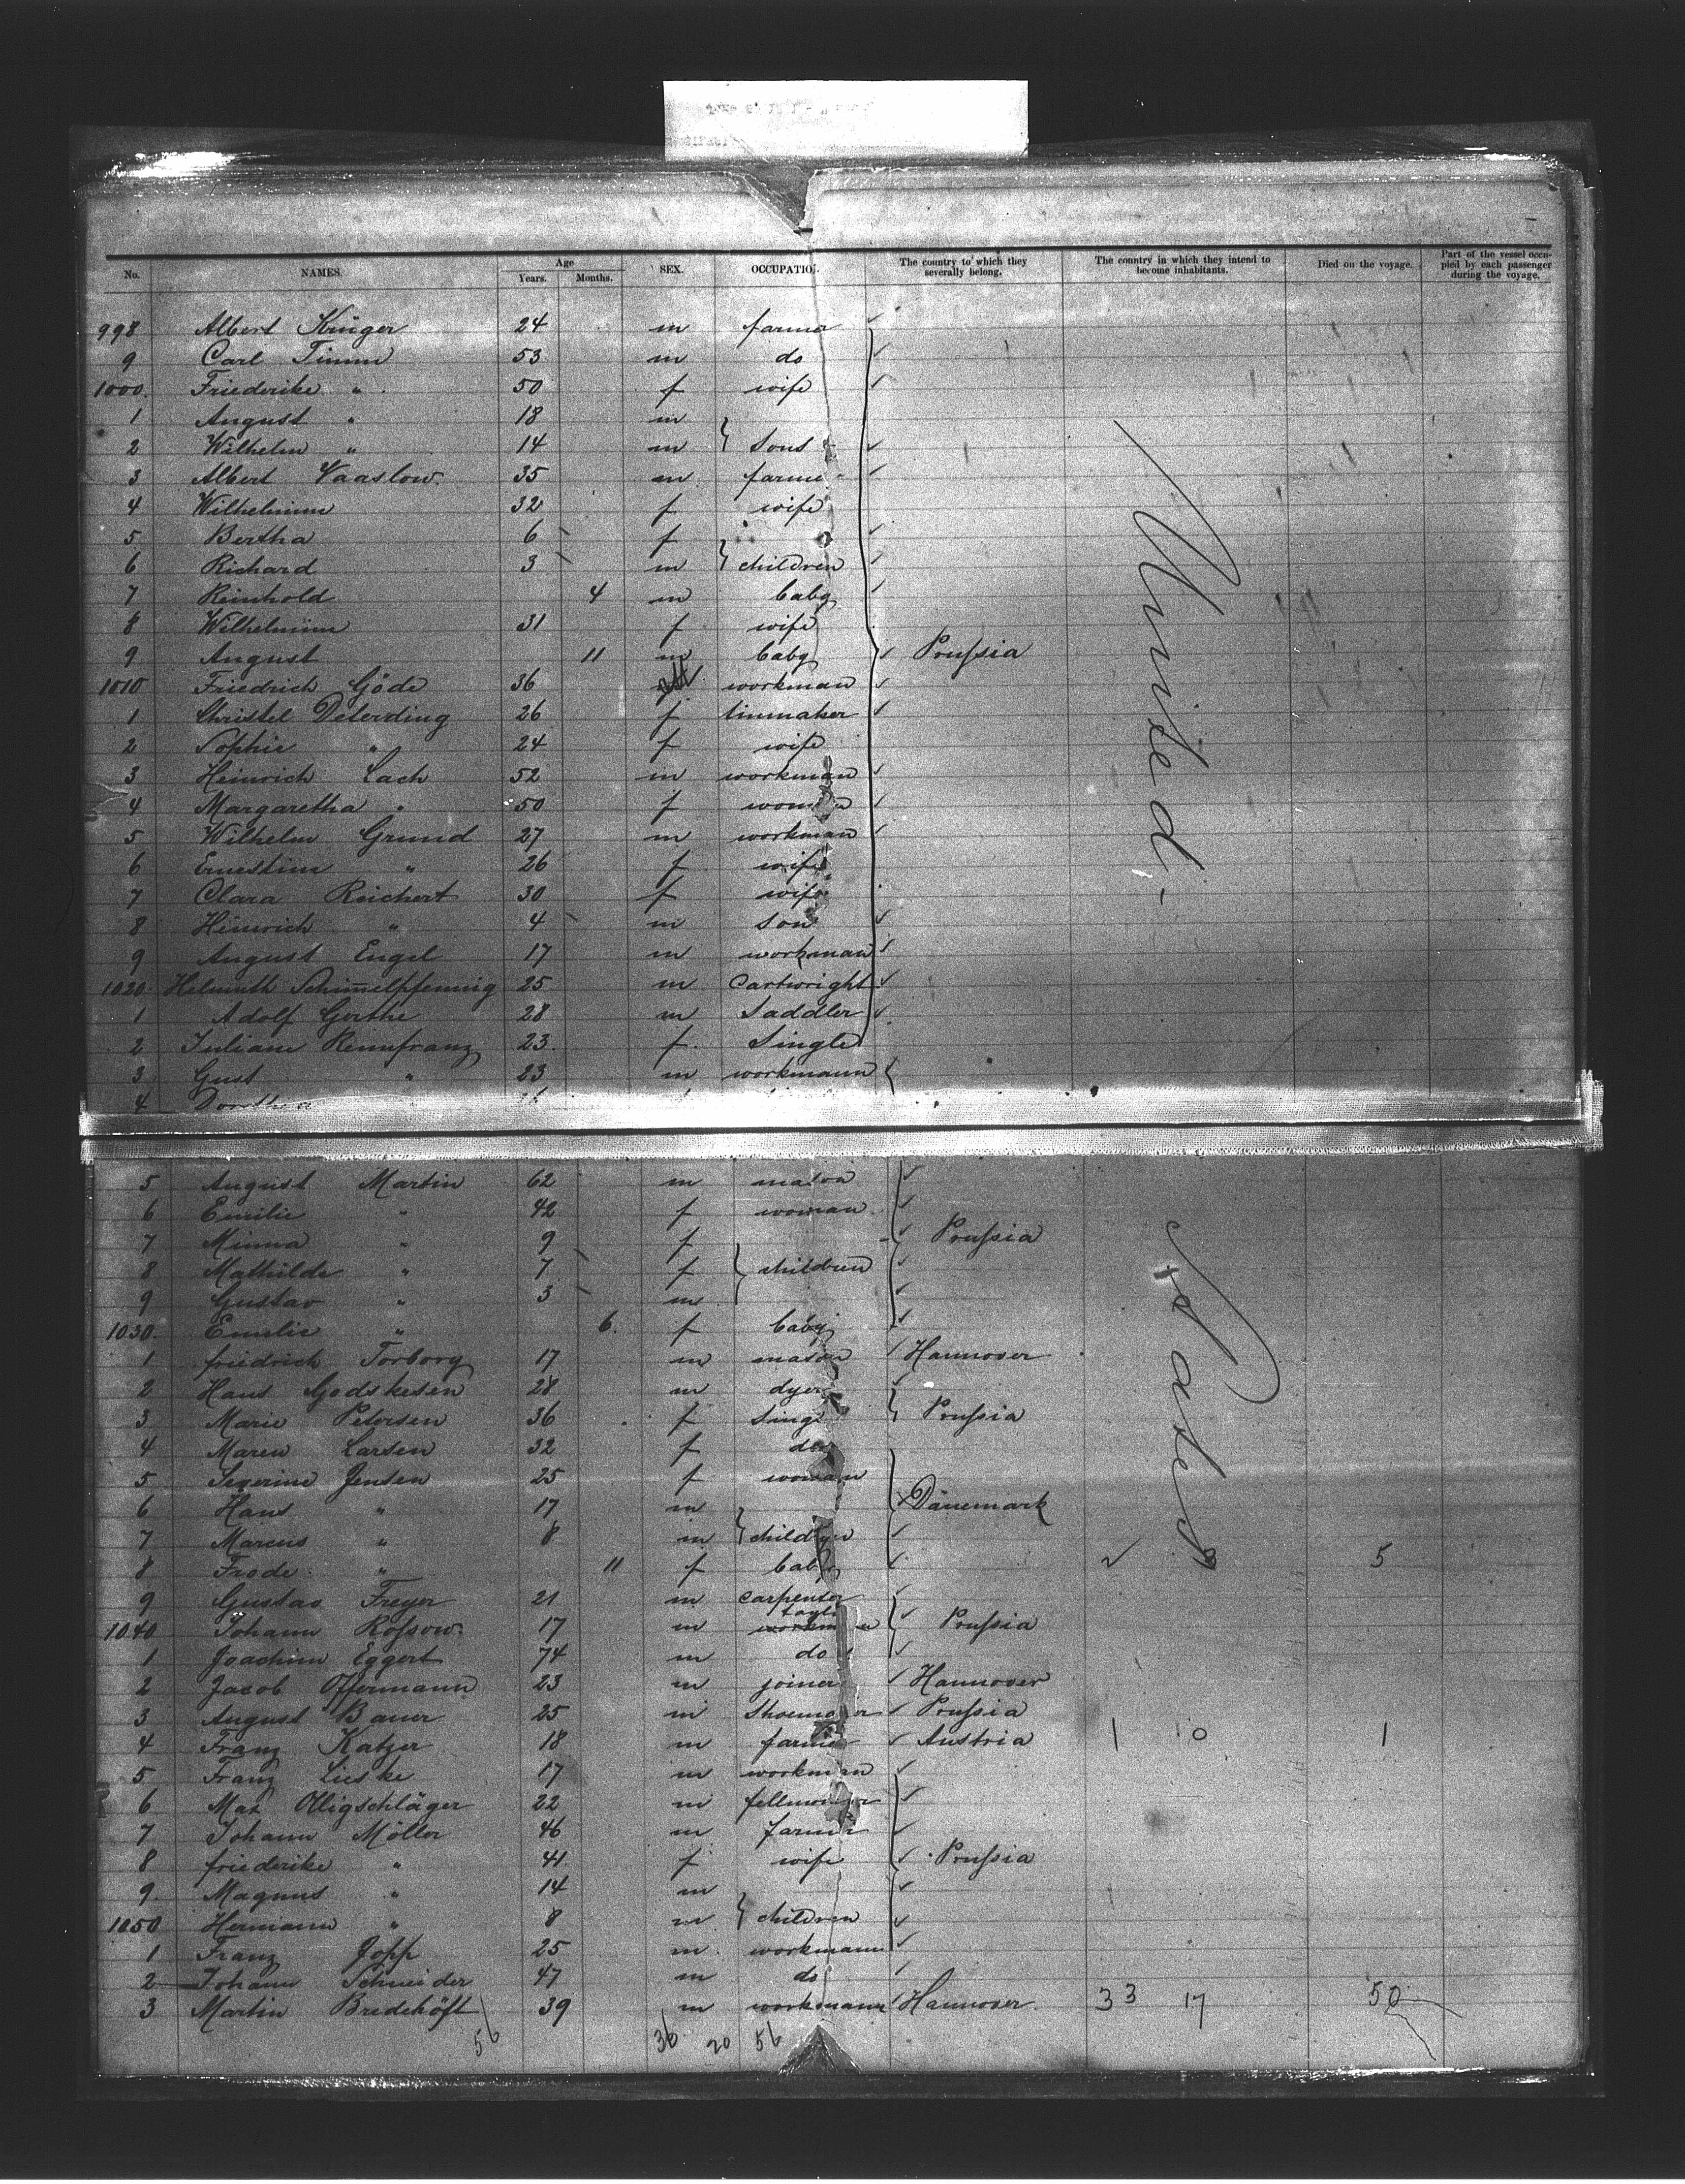 No. NAMES. Age Years. Months. SEX. OCCUPATION. The country to which they severally belong. The country in which they intend to become inhabitants. Died on the voyage. Part of the vessel occupied by each passenger during the voyage.
998 Albert Krüger 24 m farmer
9 Carl Timm 53 m do
1000. Friederike " 50 f wife
1 August " 18 m
2 Wilhelm " 14 m } Sons
3 Albert Vaaslow 35 m farmer
4 Wilhelmine 32 f wife
5 Bertha 6 f
6 Richard 3 m } children
7 Reinhold 4 m baby
8 Wilhelmine 31 f wife
9 August 11 m baby Prussia
1010 Friedrich Göde 36 workman
1 Christel Deterding 26 f tinmaker
2 Sophie " 24 f wife
3 Heinrich Lach 52 m workman
4 Margaretha " 50 f woman
5 Wilhelm Grund 27 m workman
6 Ernestine " 26 f wife
7 Clara Reichert 30 f wife
8 Heinrich " 4 m son
9 August Engel 17 m workman
1020 Helmuth Schim̄elpfennig 25 m Cartwright
1 Adolf Gerthe 28 m Saddler
2 Juliane Rennfranz 23. f. Single
3 Gust " 23 m workmann
4 Dorothea
United
5 August Martin 62 m mason
6 Emilie " 42 f woman
7 Minna " 9 f Prussia
8 Mathilde " 7 f } children
9 Gustav " 3 m
1030. Emilie " 6. f baby
1 friedrich Torborg 17 m mason Hannover
2 Hans Godskesen 28 m dyer
3 Marie Petersen 36 f Single Prussia
4 Maren Larsen 32 f do
5 Severine Jensen 25 f woman
6 Hans " 17 m Dänemark
7 Marcus " 8 m } children
8 Frode " 11 f baby 5
9 Gustav Freyer 21 m carpenter
1040 Johann Rossow. 17 m workman Prussia
1 Joachim Eggert 74 m do
2 Jacob Offermann 23 m joiner Hannover
3 August Bauer 25 m Shoemaker Prussia
4 Franz Katzer 18 m farmer Austria 1 0 1
5 Franz Lieske 17 m workman
6 Max Olligschläger 22 m fellmonger
7 Johann Möller 46 m farmer
8 friederike " 41. f wife Prussia
9. Magnus " 14 m
1050 Hermann " 8 m } children
1 Franz Jopp 25 m. workmann
2 Johann Schneider 47 m do
3 Martin Bredehöft 39 m workmann Hannover. 33 17 50
States
56 36 20 56